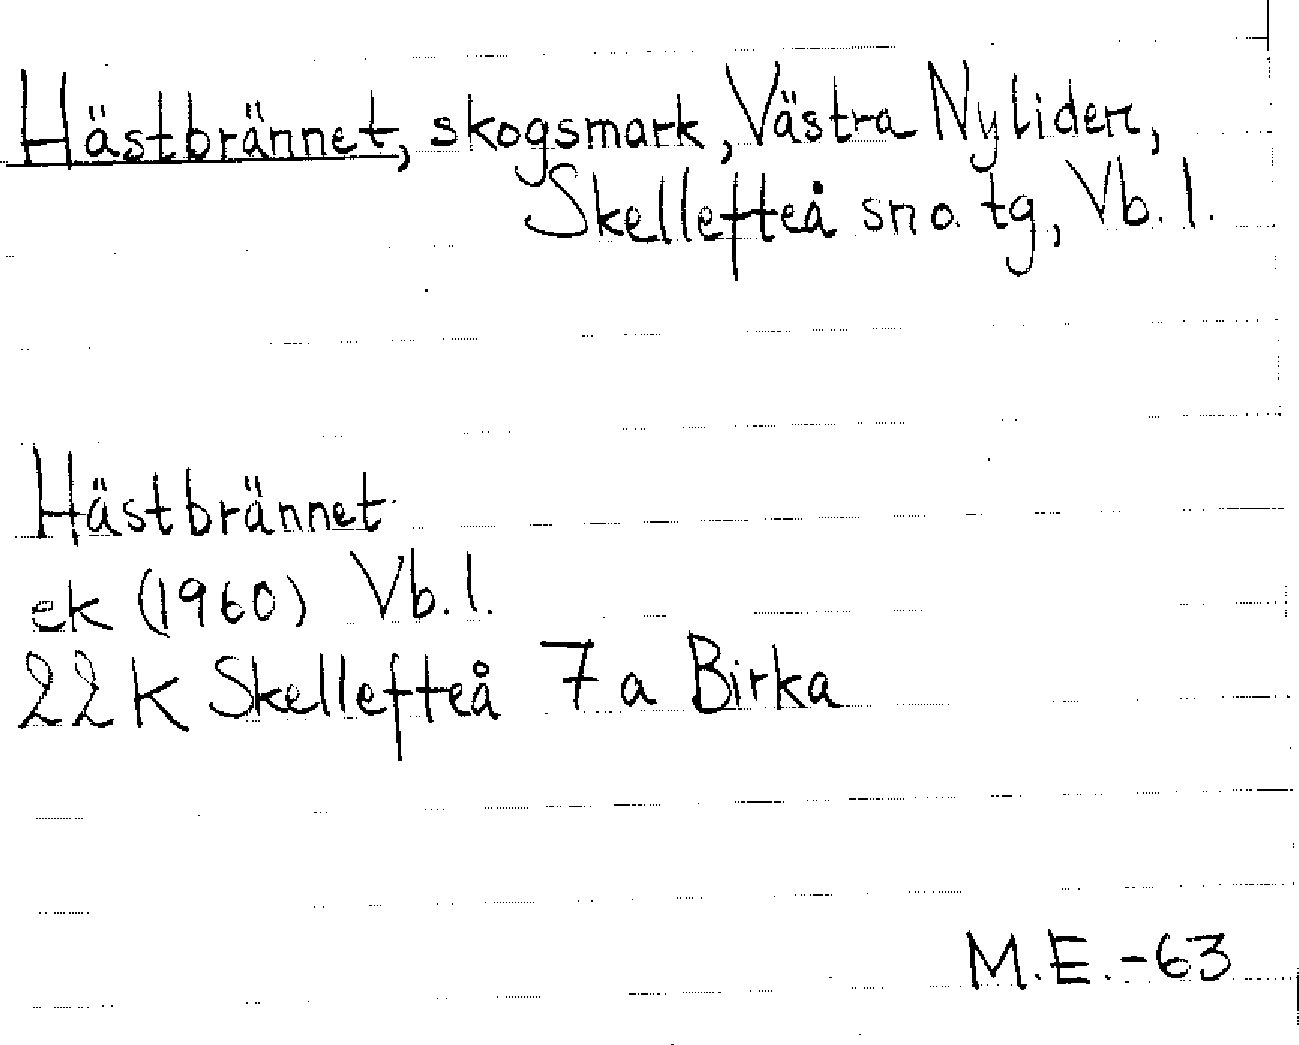 Hästbrännet, skogsmark, Västra Nyliden,
Skellefteå sn o. tg, Vb. l.
Hästbrännet
ek (1960) Vb. l.
22 K Skellefteå 7 a Birka
M.E.-63